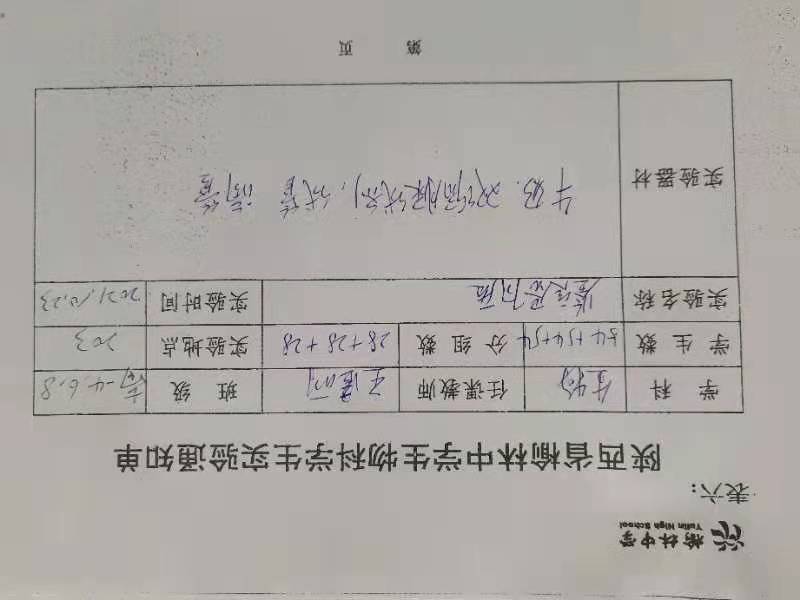 榆林中学
Yulin High School
表六:
陕西省榆林中学生物科学生实验通知单
学 科 生物 任课教师 班 级 高一4.6.8
学生数 54+54+54 分组数 28+28+28 实验地点 203
实验名称 鉴定蛋白质 实验时间 2021.10.23
实验器材 牛奶.双缩脲试剂,试管 滴管
第 页